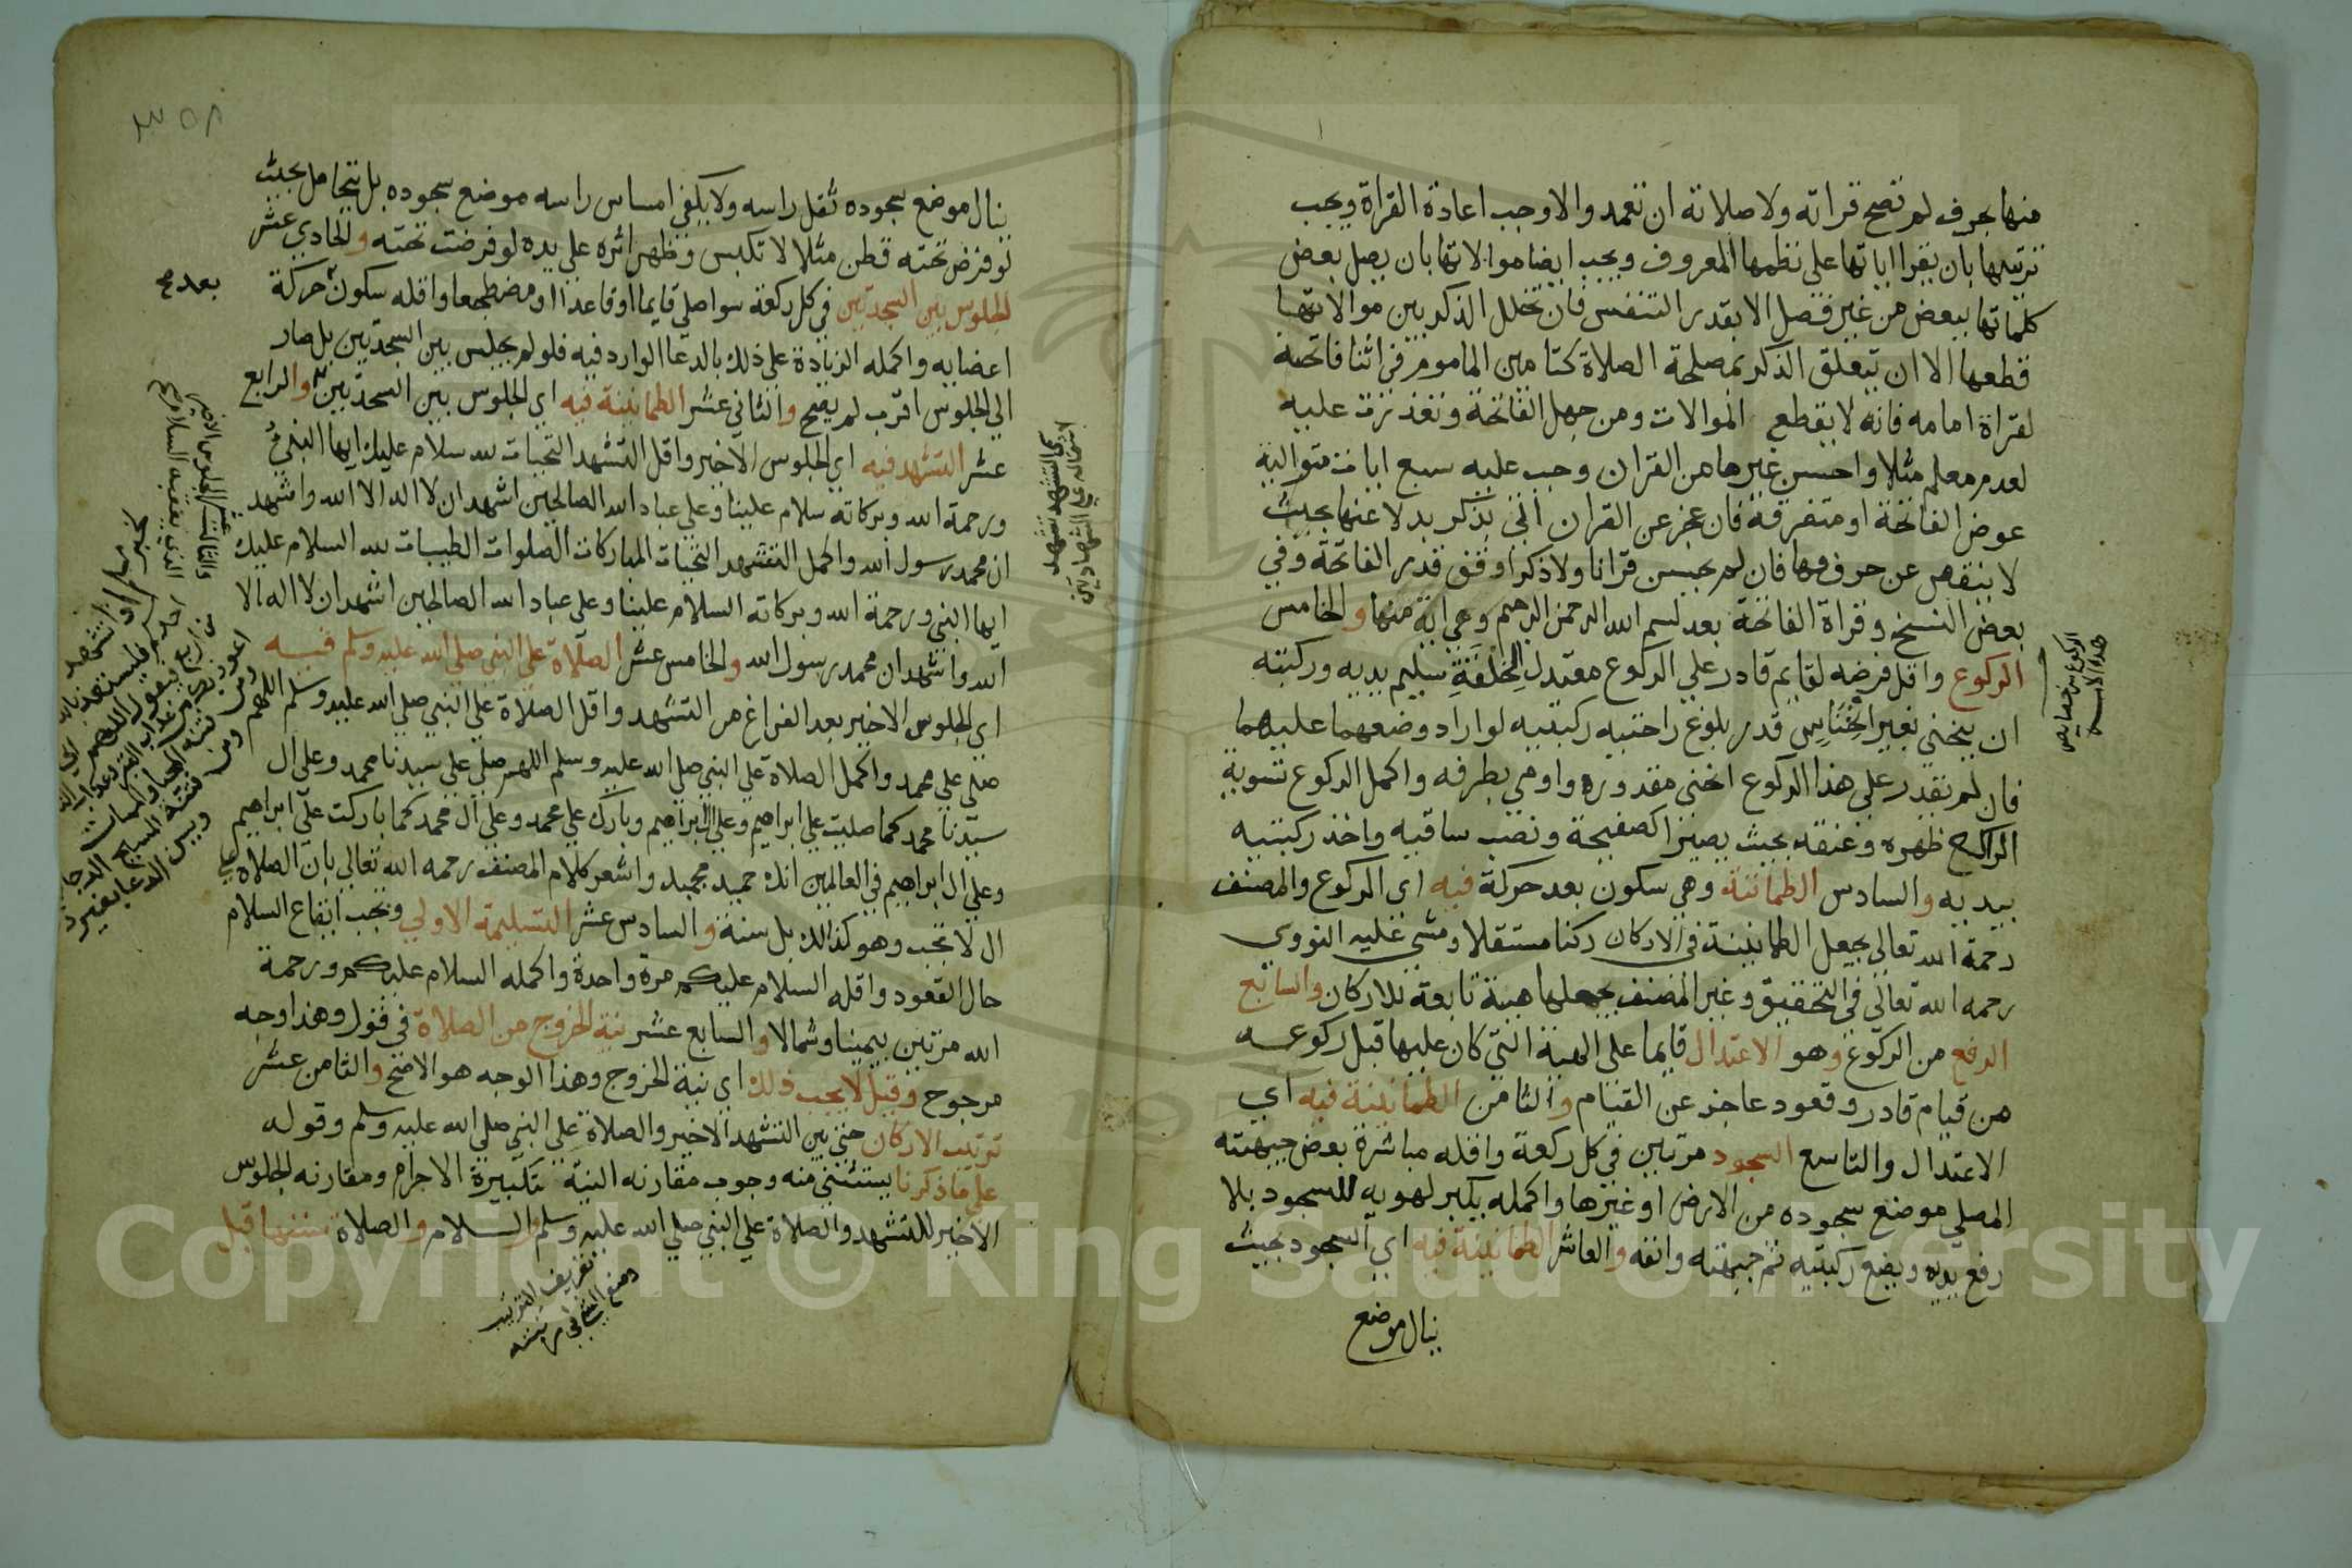 منها بحرف لم تصح قراته ولا صلاته ان تعمد والا وجب اعادة القراة ويجب
ترتيبها بان يقرا اياتها علي نظمها المعروف ويجب ايضا موالاتها بان يصل بعض
كلماتها ببعض من غير فصل الا بقدر التنفس فان تخلل الذكر بين موالاتها
قطعها الا ان تتعلق الذكر بمصلحة الصلاة كتامين الماموم في اثنا فاتحته
لقراة امامه فانه لا يقطع الموالات ومن جهل الفاتحة وتعذرت عليه
لعدم معلم مثلا واحسن غيرها من القران وجب عليه سبع ايات متوالية
عوض الفاتحة او متفرقة فان عجز عن القران اتي بذكر بدلا عنها بحيث
لا ينقص عن حروفها فان لم يحسن قرانا ولا ذكرا وقف قدر الفاتحة وفي
بعض النسخ وقراة الفاتحة بعد بسم الله الرحمن الرحيم وهي اية منها والخامس
الركوع واقل فرضه لقايم قادر علي الركوع معتدل الخلقة سليم يديه وركبته
ان ينحني بغير انخناس قدر بلوغ راحتيه ركبتيه لو اراد وضعهما عليهما
فان لم يقدر علي هذا الركوع انحني مقدوره واومي بطرفه واكمل الركوع تسوية
الراكع ظهره وعنقه بحيث يصيرا كصفيحة ونصب ساقيه واخذ ركبتيه
بيديه والسادس الطماننة وهي سكون بعد حركة فيه اي الركوع والمصنف
رحمة الله تعالي يجعل الطمانينة في الاركان ركنا مستقلا ومشي عليه النووي
رحمه الله تعالي في التحقيق وغير المصنف يجعلها هيئة تابعة للاركان والسابع
الرفع من الركوع وهو الاعتدال قايما علي الهيئة التي كان عليها قبل ركوعه
من قيام قادر وقعود عاجز عن القيام والثامن الطمانينة فيه اي
الاعتدال والتاسع السجود مرتين في كل ركعة واقله مباشرة بعض جبهته
المصلي موضع سجوده من الارض او غيرها واكمله يكبر لهويه للسجود بلا
رفع يديه ويضع ركبتيه ثم جبهته وانفه والعاشر الطمانينة فيه اي السجود بحيث
ينال موضع
٣٥٨
ينال موضع سجوده ثقل راسه ولا يكفي امساس راسه موضع سجوده بل يتحامل بحيث
لو فرض تحته قطن مثلا لا تكبس وظهر اثره علي يده لو فرضت تحته والحادي عشر
الجلوس بين السجدتين في كل ركعة سوا صلي قايما او قاعدا او مضطجعا واقله سكون حركة
بعد
اعضايه واكمله الزيادة علي ذلك بالدعا الوارد فيه فلو لم يجلس بين السجدتين بل صار
الي الجلوس اقرب لم يصح والثاني عشر الطمانينة فيه اي الجلوس بين السجدتين والرابع
عشر التشهد فيه اي الجلوس الاخير واقل التشهد التحيات لله سلام عليك ايها النبي
ورحمة الله وبركاته سلام علينا وعلي عباد الله الصالحين اشهد ان لا اله الا الله واشهد
ان محمد رسول الله واكمل التشهد التحيات المباركات الصلوات الطيبات لله السلام عليك
ايها النبي ورحمة الله وبركاته السلام علينا وعلي عباد الله الصالحين اشهد ان لا اله الا
الله واشهد ان محمد رسول الله والخامس عشر الصلاة علي النبي صلي الله عليه وسلم فيه
اي الجلوس الاخير بعد الفراغ من التشهد واقل الصلاة علي النبي صلي الله عليه وسلم اللهم
صلي علي محمد واكمل الصلاة علي النبي صلي الله عليه وسلم اللهم صلي علي سيدنا محمد وعلي ال
سيدنا محمد كما صليت علي ابراهيم وعلي ال ابراهيم وبارك علي محمد وعلي ال محمد كما باركت علي ابراهيم
وعلي ال ابراهيم في العالمين انك حميد مجيد واشعر كلام المصنف رحمه الله تعالي بان الصلاة علي
ال لا تجب وهو كذالك بل سنة والسادس عشر التسليمة الاولي ويجب ايقاع السلام
حال القعود واقله السلام عليكم مرة واحدة واكمله السلام عليكم ورحمة
الله مرتين يمينا وشمالا والسابع عشر نية الخروج من الصلاة في قول وهذا وجه
مرجوح وقيل لا يجب ذلك اي نية الخروج وهذا الوجه هو الاصح والثامن عشر
ترتيب الاركان حتي بين التشهد الاخير والصلاة علي النبي صلي الله عليه وسلم وقوله
علي ما ذكرنا يستثني منه وجوب مقارنه النية بتكبيرة الاحرام ومقارنه الجلوس
الاخير للتشهد والصلاة علي النبي صلي الله عليه وسلم والسلام والصلاة سننها قبل
سمي التشهد تشهدا
اشتماله علي الشهادتين
والثالث عشر الجلوس الاخير
الذي يعقبه السلام
تعريف الترتيب
وضع الشي في مرتبته
Copyright © King Saud University